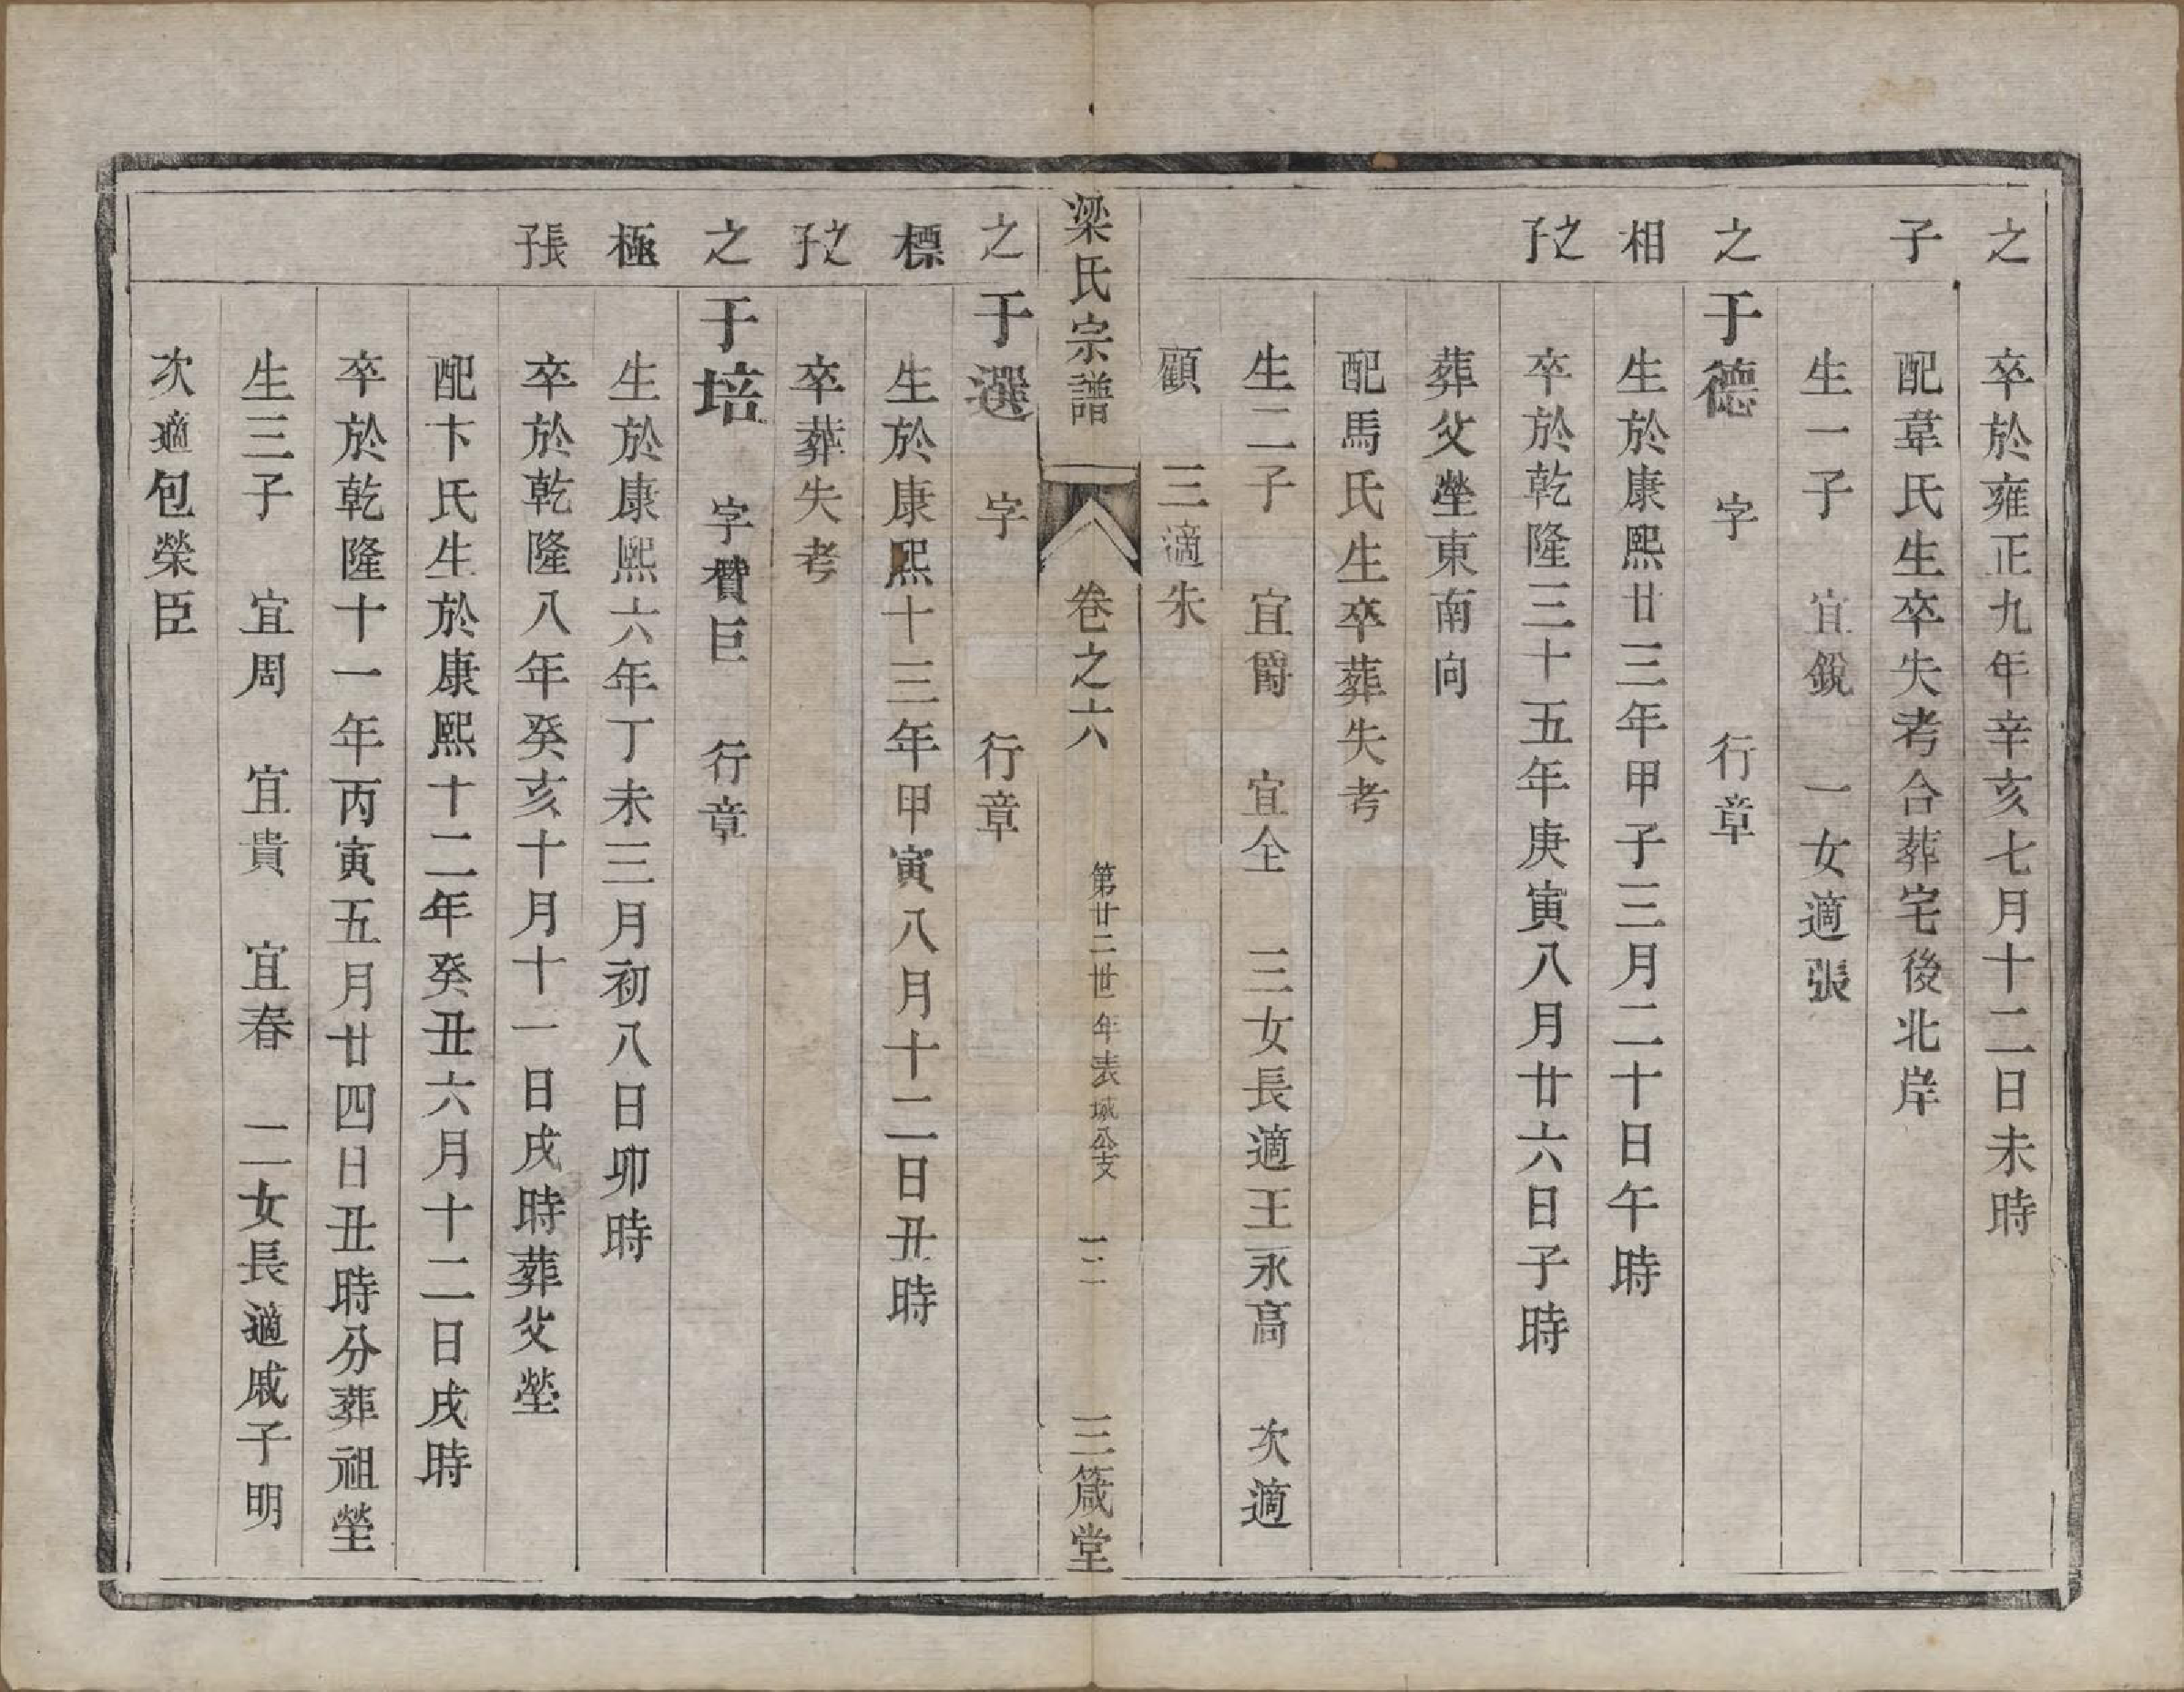 之　卒於雍正九年辛亥七月十二日未時
子　配韋氏生卒失考合葬宅後北岸
生一子　宜銳　一女適張
之　于德　字　行章
相　生於康熙廿三年甲子三月二十日午時
之子　卒於乾隆三十五年庚寅八月廿六日子時
葬父塋東南向
配馬氏生卒葬失考
生二子　宜爵　宜全　三女長適王永高　次適
顧　三適朱
梁氏宗譜　卷之六　第廿二世年表城公支　三　三箴堂
之　于選　字　行章
標　生於康熙十三年甲寅八月十二日丑時
之子　卒葬失考
之　于培　字贊臣　行章
極　生於康熙六年丁未三月初八日卯時
張子　卒於乾隆八年癸亥十月十一日戌時葬父塋
配卞氏生於康熙十二年癸丑六月十二日戌時
卒於乾隆十一年丙寅五月廿四日丑時分葬祖塋
生三子　宜周　宜貴　宜春　二女長適戚子明
次適包榮臣